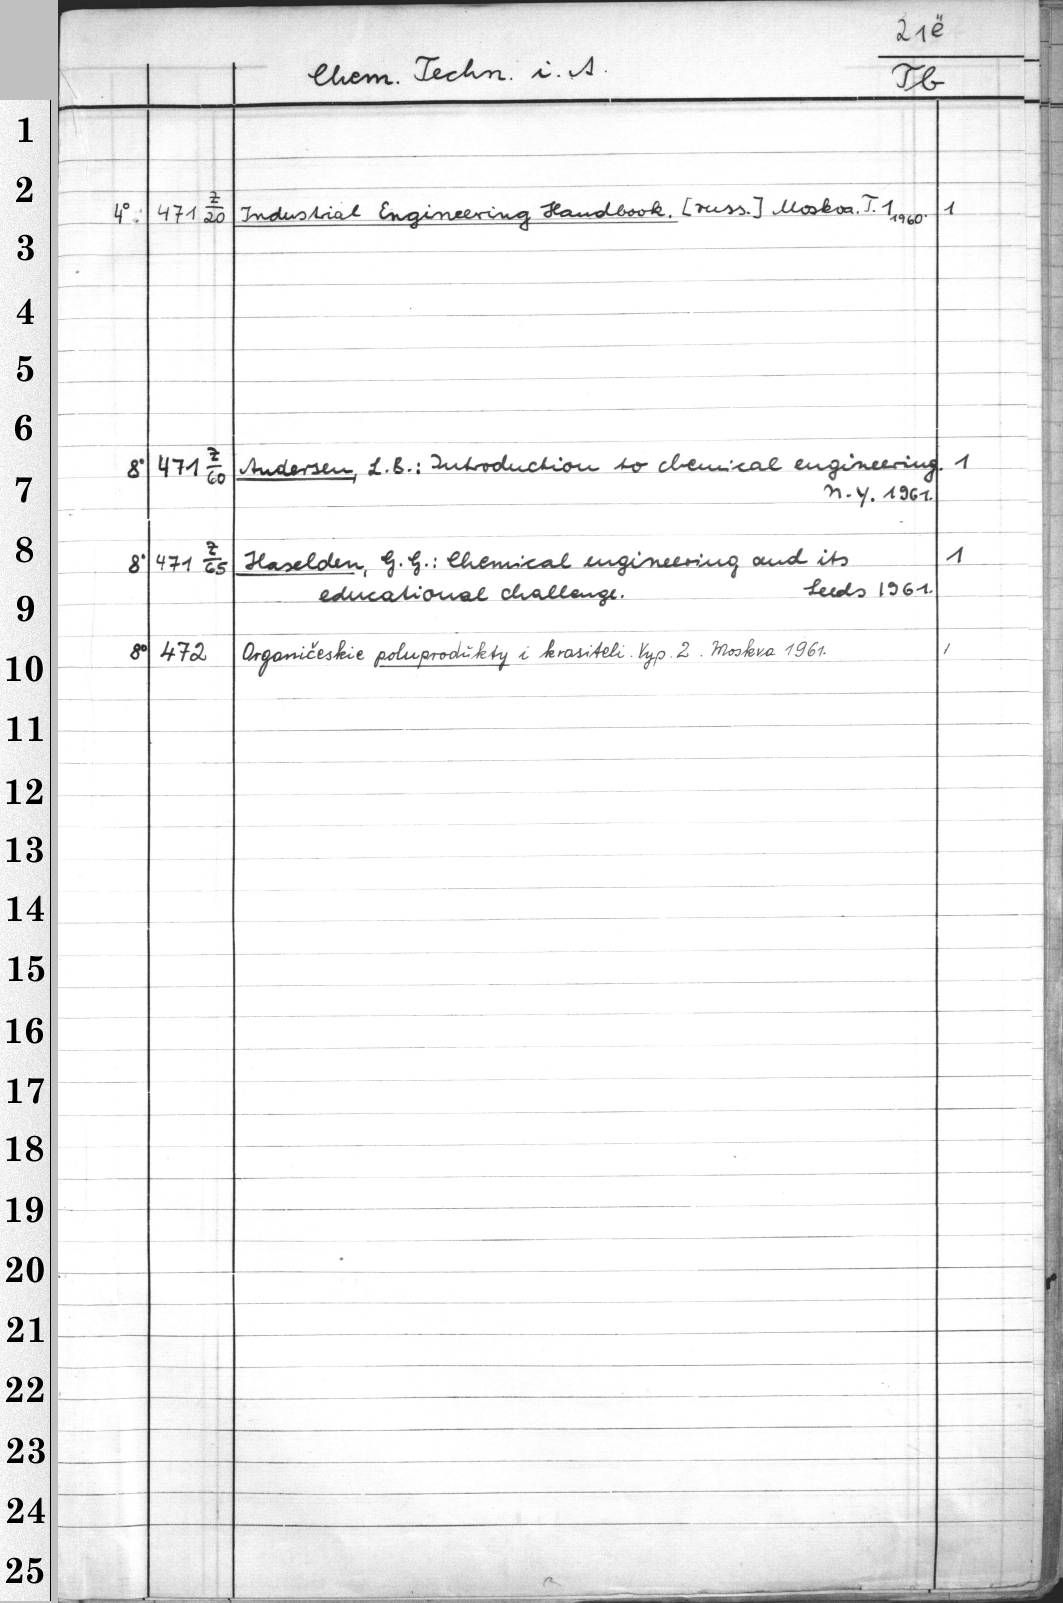 21ë
Chem. Techn. i. A. Tb
1
2
4° 471 Z/20 Industrial Engineering Handbook. [russ.] Moskva. T. 1 1960. 1
3
4
5
6
8° 471 Z/60 Andersen, L.B.: Introduction to chemical engineering. 1
7
N.Y. 1961.
8
8° 471 Z/65 Haselden, G.G.: Chemical engineering and its 1
9
educational challenge. Leeds 1961.
8° 472 Organičeskie poluprodukty i krasiteli. Vyp. 2. Moskva 1961. 1
10
11
12
13
14
15
16
17
18
19
20
21
22
23
24
25